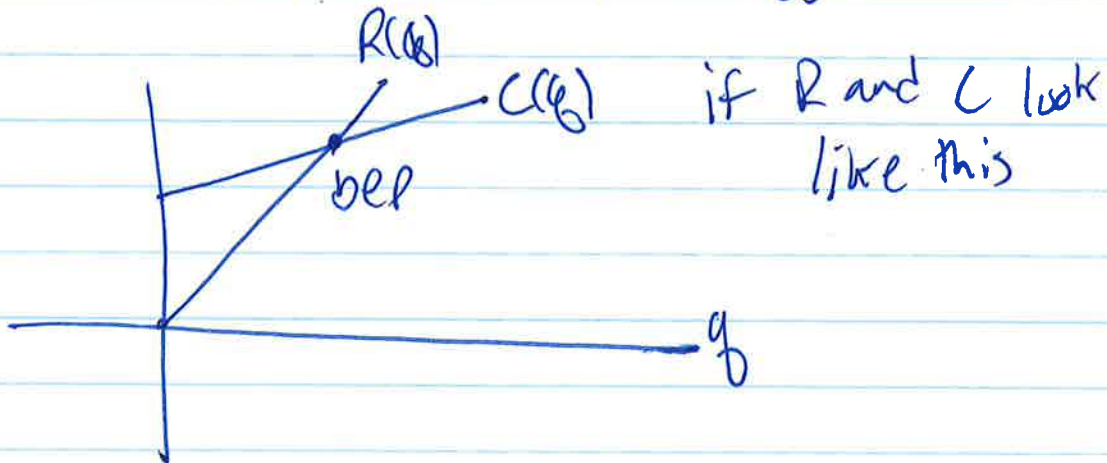 R(q)
C(q)
if R and C look
like this
bep
q